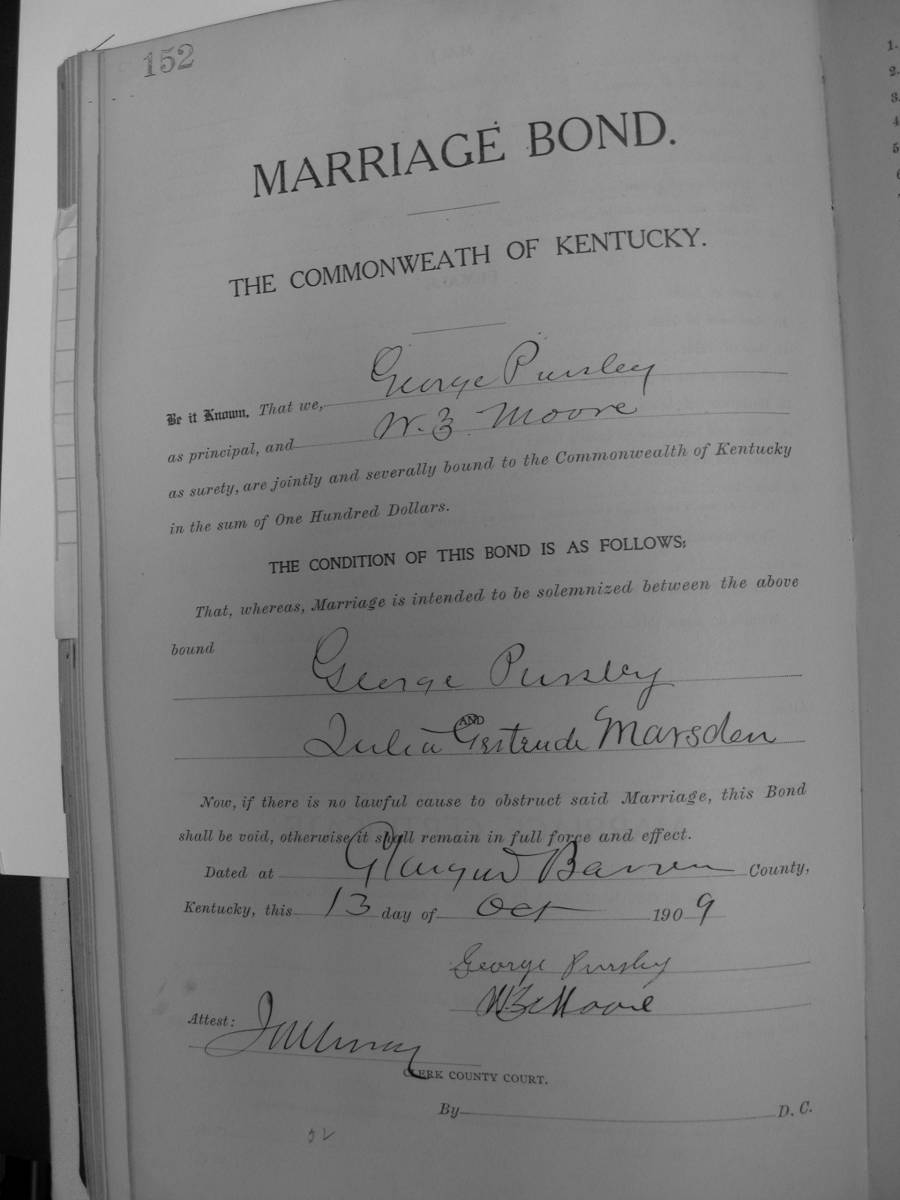 152
MARRIAGE BOND.
THE COMMONWEATH OF KENTUCKY.
Be it Known, That we, George Pursley
as principal, and W. Z. Moore
as surety, are jointly and severally bound to the Commonwealth of Kentucky
in the sum of One Hundred Dollars.
THE CONDITION OF THIS BOND IS AS FOLLOWS:
That, whereas, Marriage is intended to be solemnized between the above
bound
George Pursley
AND
Julia Gertrude Marsden
Now, if there is no lawful cause to obstruct said Marriage, this Bond
shall be void, otherwise it shall remain in full force and effect.
Dated at Glasgow Barren County,
Kentucky, this 13 day of Oct 1909
George Pursley
W. Z. Moore
Attest:
CLERK COUNTY COURT.
By D. C.
1.
2.
3.
4
5